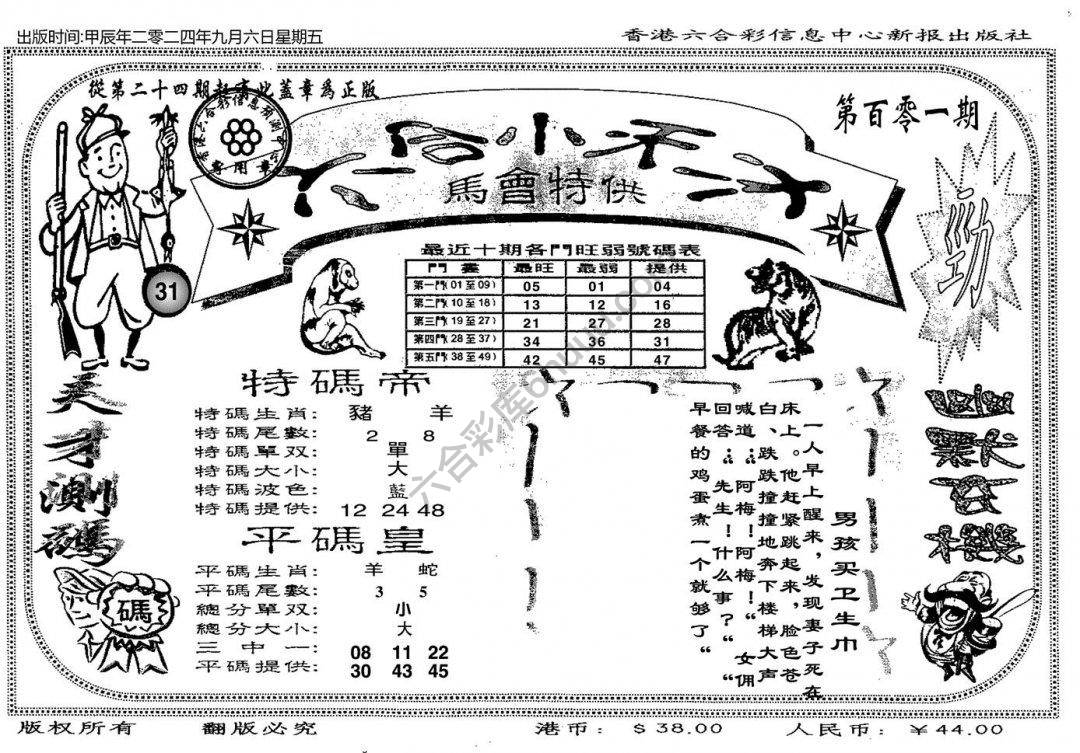 出版时间:甲辰年二零二四年九月六日星期五
香港六合彩信息中心新报出版社
從第二十四期起零此蓋章爲正版
第百零一期
馬會特供
31
勁
最近十期各門旺弱號碼表
門畫 最旺 最弱 提供
第一門(01至09) 05 01 04
第二門(10至18) 13 12 16
第三門(19至27) 21 27 28
第四門(28至37) 34 36 31
第五門(38至49) 42 45 47
特碼帝
特碼生肖: 豬 羊
特碼尾數: 2 8
特碼單双: 單
特碼大小: 大
特碼波色: 藍
特碼提供: 12 24 48
平碼皇
平碼生肖: 羊 蛇
平碼尾數: 3 5
總分單双: 小
總分大小: 大
三中一: 08 11 22
平碼提供: 30 43 45
男孩买卫生巾
一人早上醒来,发现妻子死在
床上。他赶紧跳起来,脸色苍
白、跌跌撞撞地奔下楼梯大声
喊道:“阿梅!阿梅!”女佣
回答:“先生!什么事?”“
早餐的鸡蛋煮一个就够了“
天才測碼
碼
六合彩库6huuu.com
版权所有
翻版必究
港币: $38.00
人民币: ¥44.00